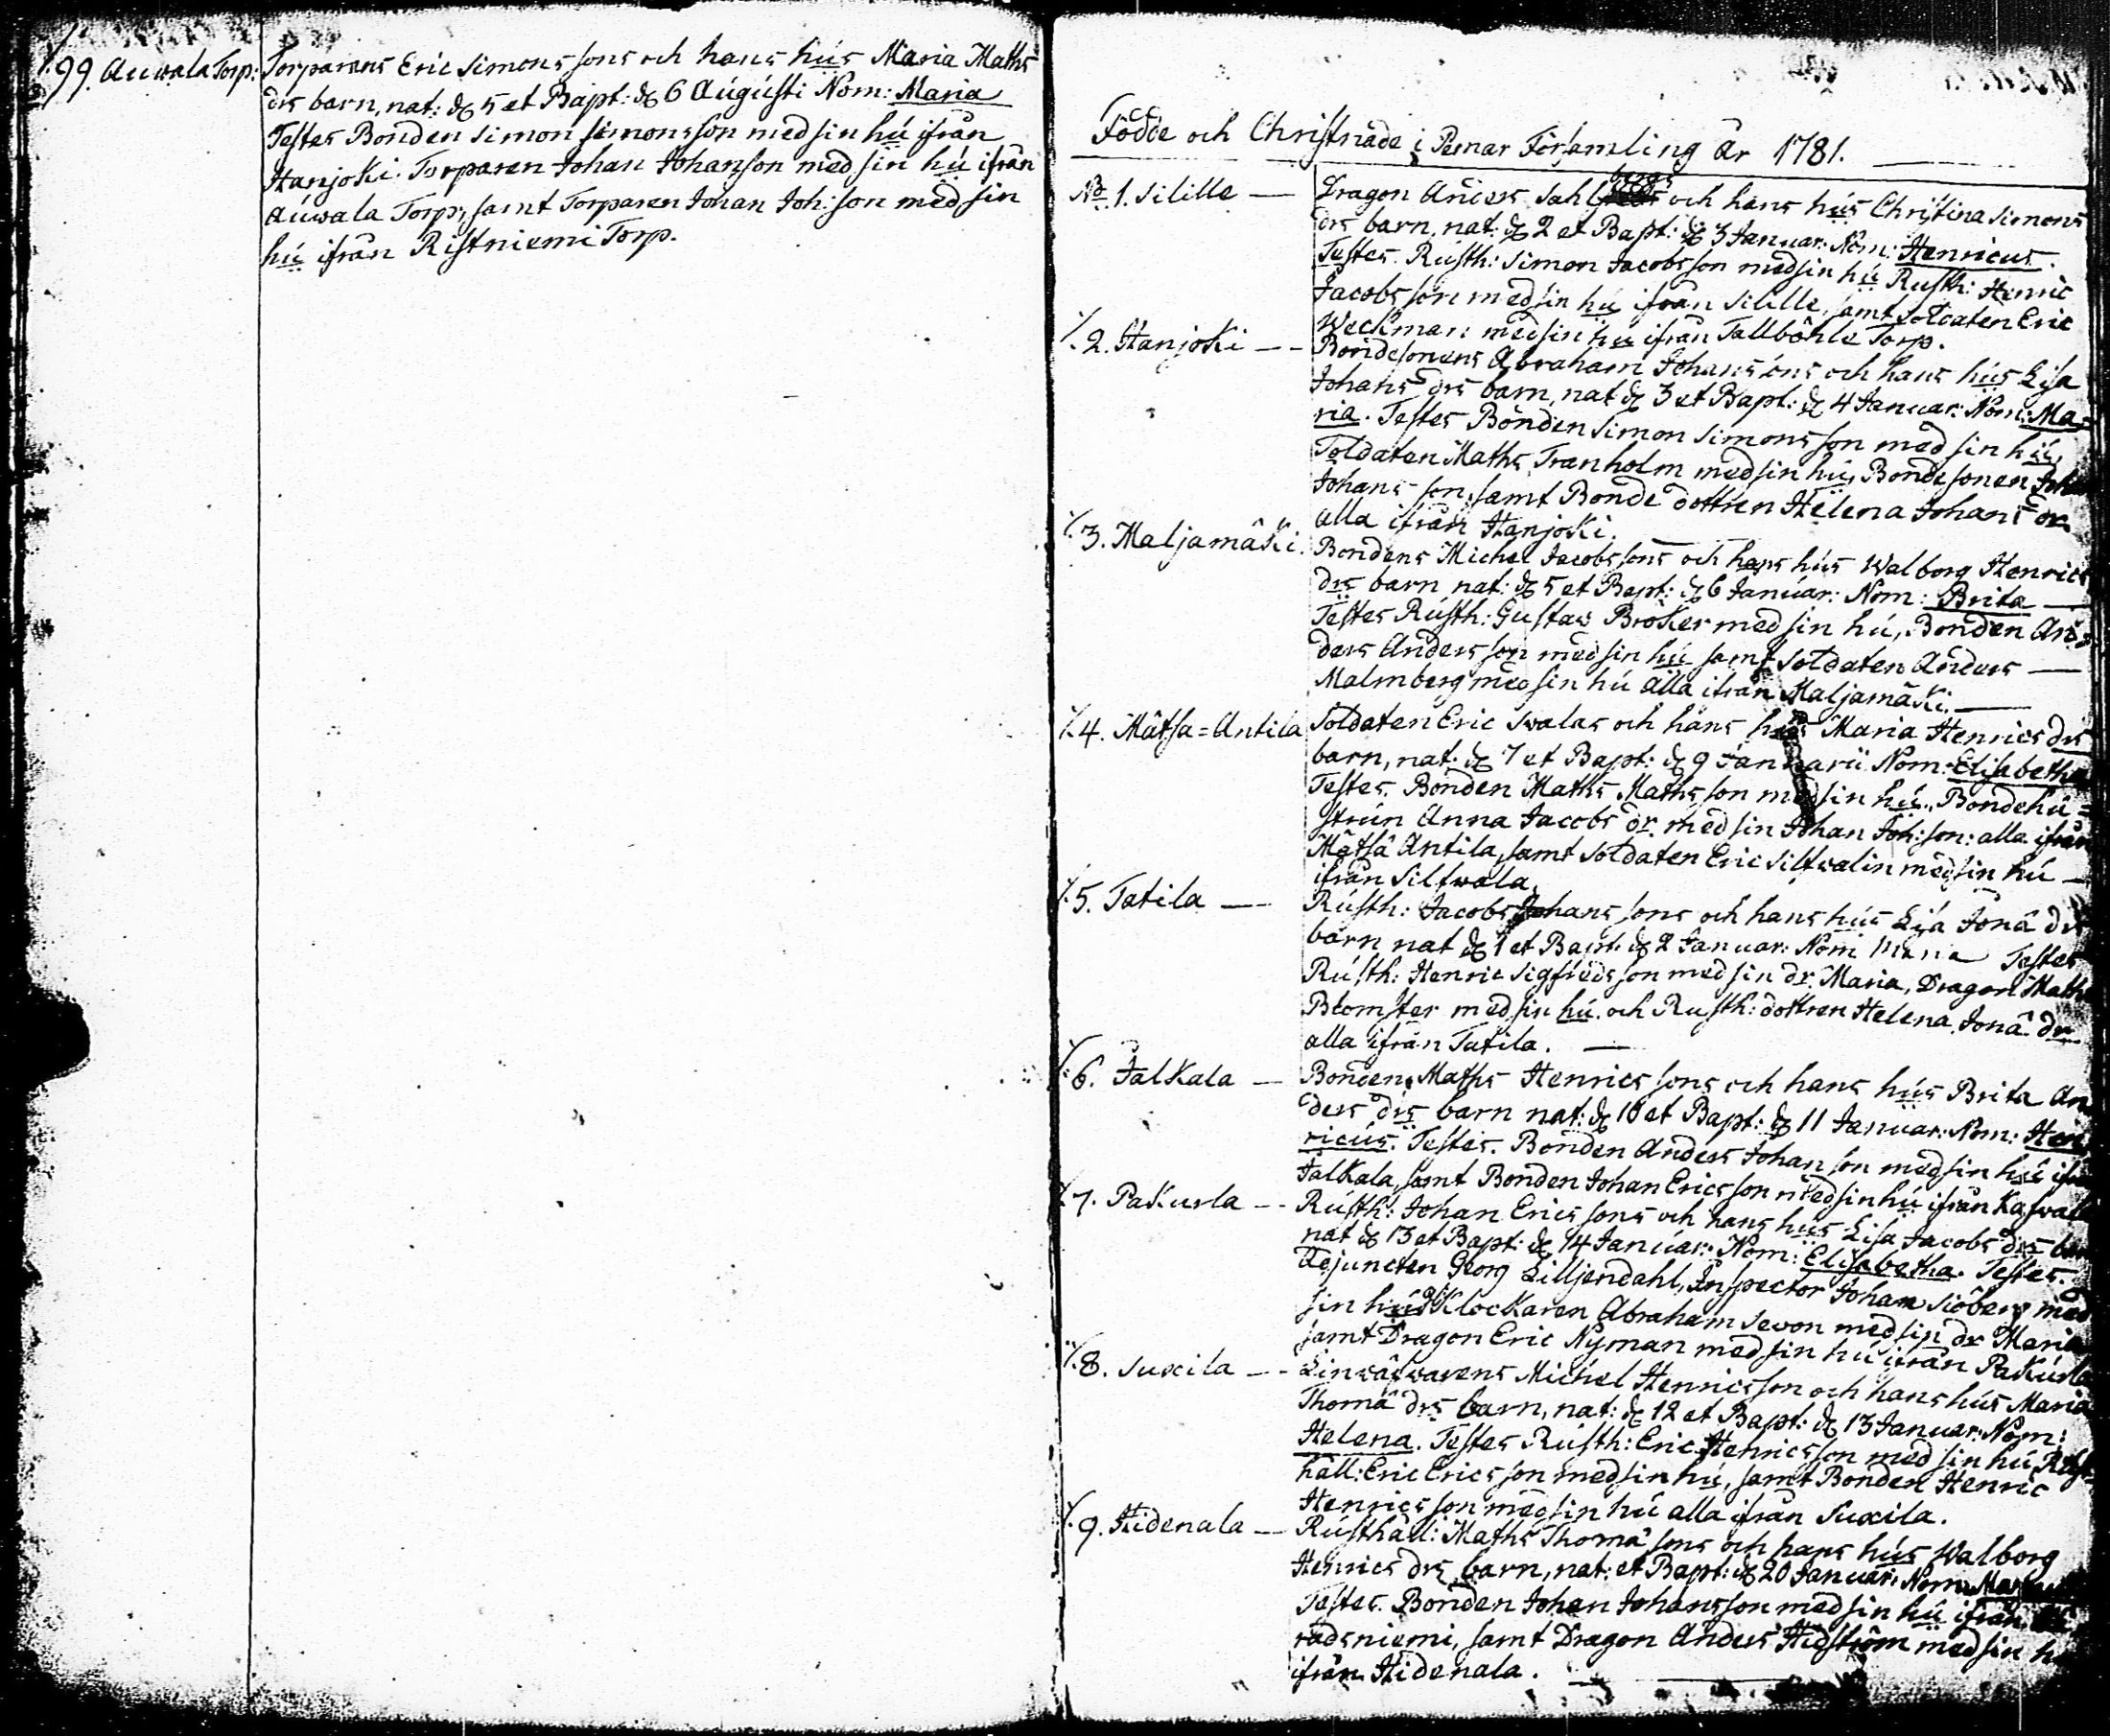 99. Auwala Torp: Torparens Eric Simons sons och hans hús Maria Maths
drs barn, nat: d 5 et Bapt: d 6 Augústi Nom: Maria
Testes Bonden Simon Simonsson med sin hú ifrån
Hanjoki. Torparen Johan Johanson med sin hú ifrån
Aúwala Torp, samt Torparen Johan Joh: son med sin
hú ifrån Ristniemi Torp.
Födde och Christnade i Pemar Församling År 1781.
No 1. Silille — Dragon Anders Sahlbergs och hans hús Christina Simons
drs barn, nat: d 2 et Bapt: d 3 Januar: Nom: Henricus.
Testes. Rústh: Simon Jacobsson med sin hú Rusth: Henric
Jacobsson med sin hú ifrån Silille, samt Soldaten Eric
Weckman med sin hú ifrån Tallböhle Torp.
2. Hanjoki — Bondesonens Abraham Johansons och hans hús Lisa
Johans drs barn, nat d 3 et Bapt: d 4 Januar: Nom: Ma=
ria. Testes Bonden Simon Simonsson med sin hú,
Soldaten Maths Tranholm med sin hú, Bondesonen Joh
Johans son, samt Bonde dottren Helena Johans dr
alla ifrån Hanjoki.
3. Maljamäki. Bondens Michel Jacobssons och hans hús Walborg Henrics
drs barn nat: d 5 et Bapt: d 6 Januar: Nom: Brita —
Testes Rústh: Gustaw Bröker med sin hú, Bonden An=
ders Andersson med sin hú samt Soldaten Anders —
Malmberg med sin hú alla ifrån Maljamäki. —
4. Mätsa=Antila Soldaten Eric Swalas och hans hús Maria Henrics drs
barn, nat: d 7 et Bapt: d 9 Januarii Nom: Elisabetha
Testes. Bonden Maths Mathsson med sin hú, Bondehú=
strún Anna Jacobs dr. med sin Johan Joh: son: alla ifrån
Mätsä Antila, samt Soldaten Eric Siltwalin med sin hú —
ifrån Siltwala.
5. Tatila — Rústh: Jacobs Johans sons och hans hús Lisa Jonä drs
barn nat d 1 et Bapt: d 2 Januar: Nom Maria Testes
Rústh: Henric Sigfredsson med sin dr. Maria, Dragon Maths
Blomster med sin hú. och Rusth: dottren Helena Jonä dr
alla ifrån Tatila. —
6. Jalkala — Bondens Maths Henrics sons och hans hús Brita An
ders drs barn nat: d 10 et Bapt: d 11 Januar: Nom: Hen
ricús. Testes. Bonden Anders Johanson med sin hú ifrån
Jalkala, samt Bonden Johan Ericsson med sin hú ifrån
7. Pakurla — Rústh: Johan Erics sons och hans hús Lisa Jacobs drs barn
nat d 13 et Bapt: d 14 Januar: Nom: Elisabetha. Testes.
Adjuncten Georg Lilljendahl, Inspector Johan Siöberg med
sin hú, Klockaren Abraham Sevon med sin dr Maria
samt Dragon Eric Nyman med sin hú ifrån Pakúrla
8. Suxila — Linwäfwarens Michel Henricsson och hans hús Maria
Thomä drs barn, nat: d 12 et Bapt: d 13 Januar: Nom:
Helena. Testes Rústh: Eric Henricsson med sin hú, Rúst=
håll: Eric Ericsson med sin hú, samt Bonden Henric
Henricsson med sin hú alla ifrån Suxila.
9. Hidenala — Rústhåll: Maths Thomä sons och hans hús Walborg
Henrics drs barn, nat: et Bapt: d 20 Januar: Nom:
Testes. Bonden Johan Johansson med sin hú ifrån
radsniemi, samt Dragon Anders Hidström med sin h
ifrån Hidenala.